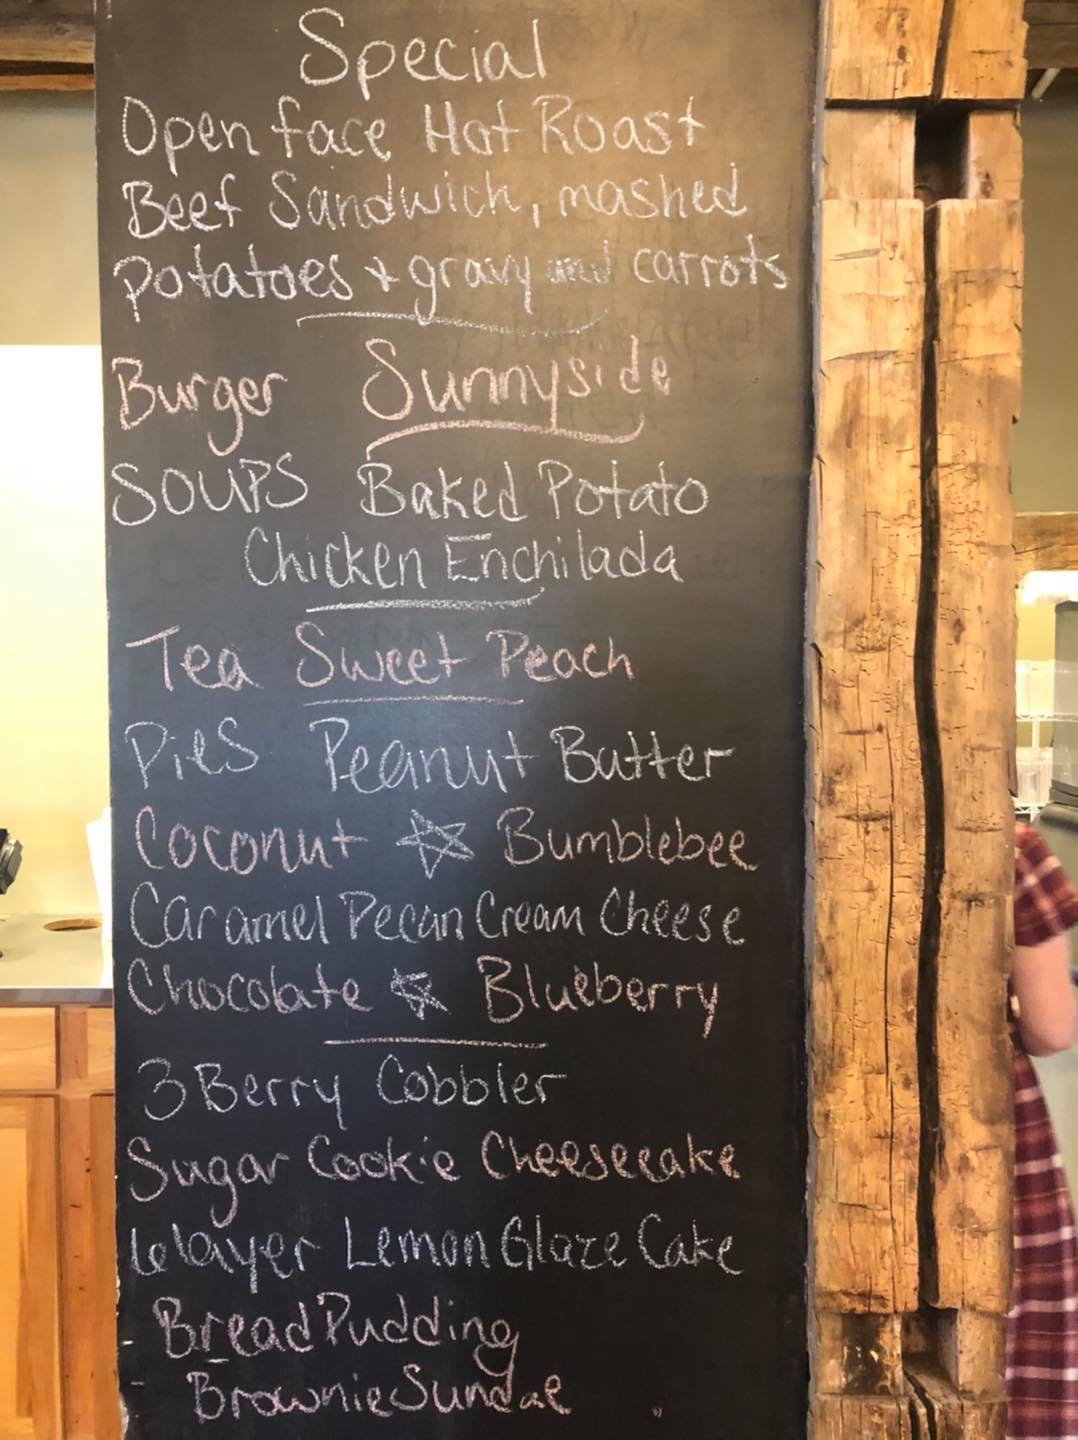 Special
Open face Hot Roast
Beef Sandwich, mashed
potatoes + gravy and carrots
Burger Sunnyside
SOUPS Baked Potato
Chicken Enchilada
Tea Sweet Peach
Pies Peanut Butter
Coconut ☆ Bumblebee
Caramel Pecan Cream Cheese
Chocolate ☆ Blueberry
3 Berry Cobbler
Sugar Cookie Cheesecake
6 layer Lemon Glaze Cake
Bread Pudding
Brownie Sundae